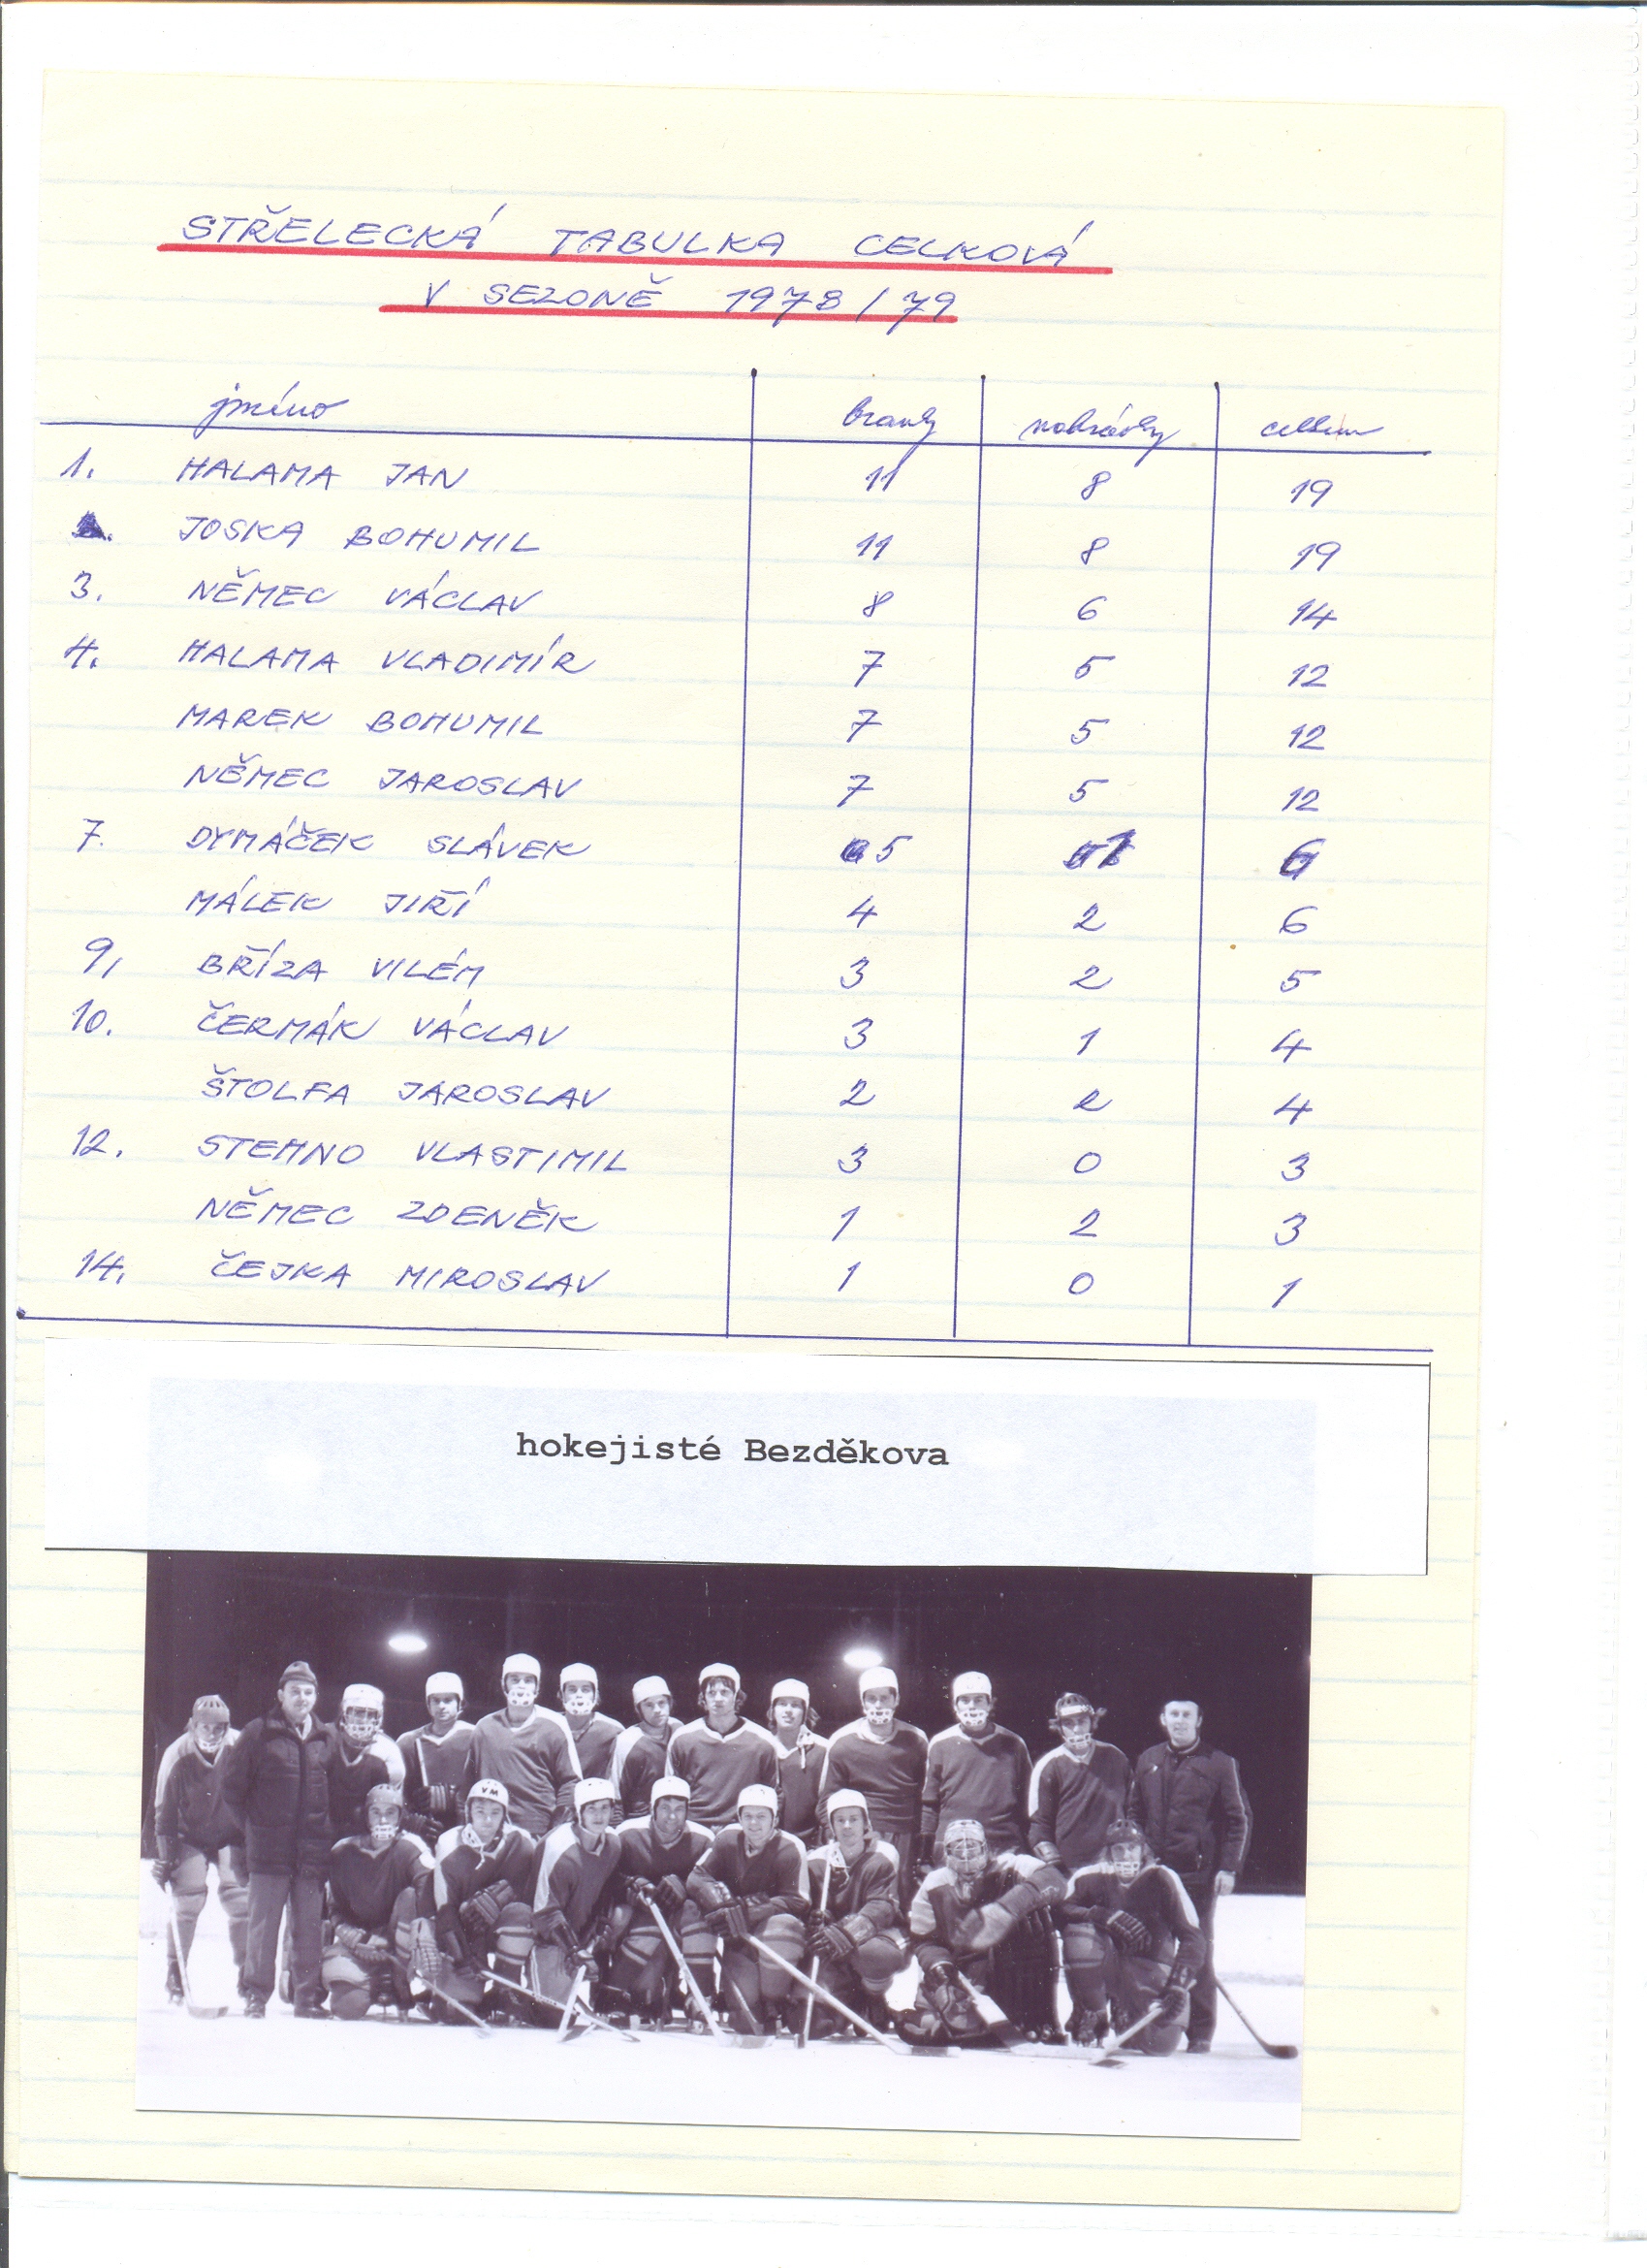 STŘELECKÁ TABULKA CELKOVÁ
V SEZONĚ 1978/79
jméno branky nahrávky celkem
1. HALAMA JAN 11 8 19
JOSKA BOHUMIL 11 8 19
3. NĚMEC VÁCLAV 8 6 14
4. HALAMA VLADIMÍR 7 5 12
MAREK BOHUMIL 7 5 12
NĚMEC JAROSLAV 7 5 12
7. DYMÁČEK SLÁVEK 5 1 6
MÁLEK JIŘÍ 4 2 6
9. BŘÍZA VILÉM 3 2 5
10. ČERMÁK VÁCLAV 3 1 4
ŠTOLFA JAROSLAV 2 2 4
12. STEHNO VLASTIMIL 3 0 3
NĚMEC ZDENĚK 1 2 3
14. ČEJKA MIROSLAV 1 0 1
hokejisté Bezděkova
VM